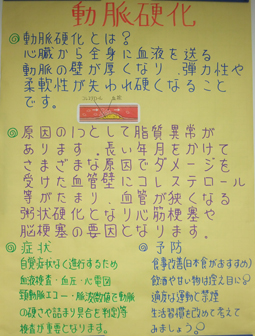 動脈硬化
◎動脈硬化とは？
心臓から全身に血液を送る
動脈の壁が厚くなり、弾力性や
柔軟性が失われ硬くなること
です。
コレステロール 血栓
◎原因の1つとして脂質異常が
あります。長い年月をかけて
さまざまな原因でダメージを
受けた血管壁にコレステロール
等がたまり、血管が狭くなる
粥状硬化となり心筋梗塞や
脳梗塞の要因となります。
◎症状
自覚症状なく進行するため
血液検査・血圧・心電図
頸動脈エコー・脈波数値で動脈
の硬さや詰まり具合を判定等
検査が重要となります。
◎予防
食事改善(日本食がおすすめ)
飲酒や甘い物は控え目に
適度な運動と禁煙
生活習慣を改めて考えて
みましょう。